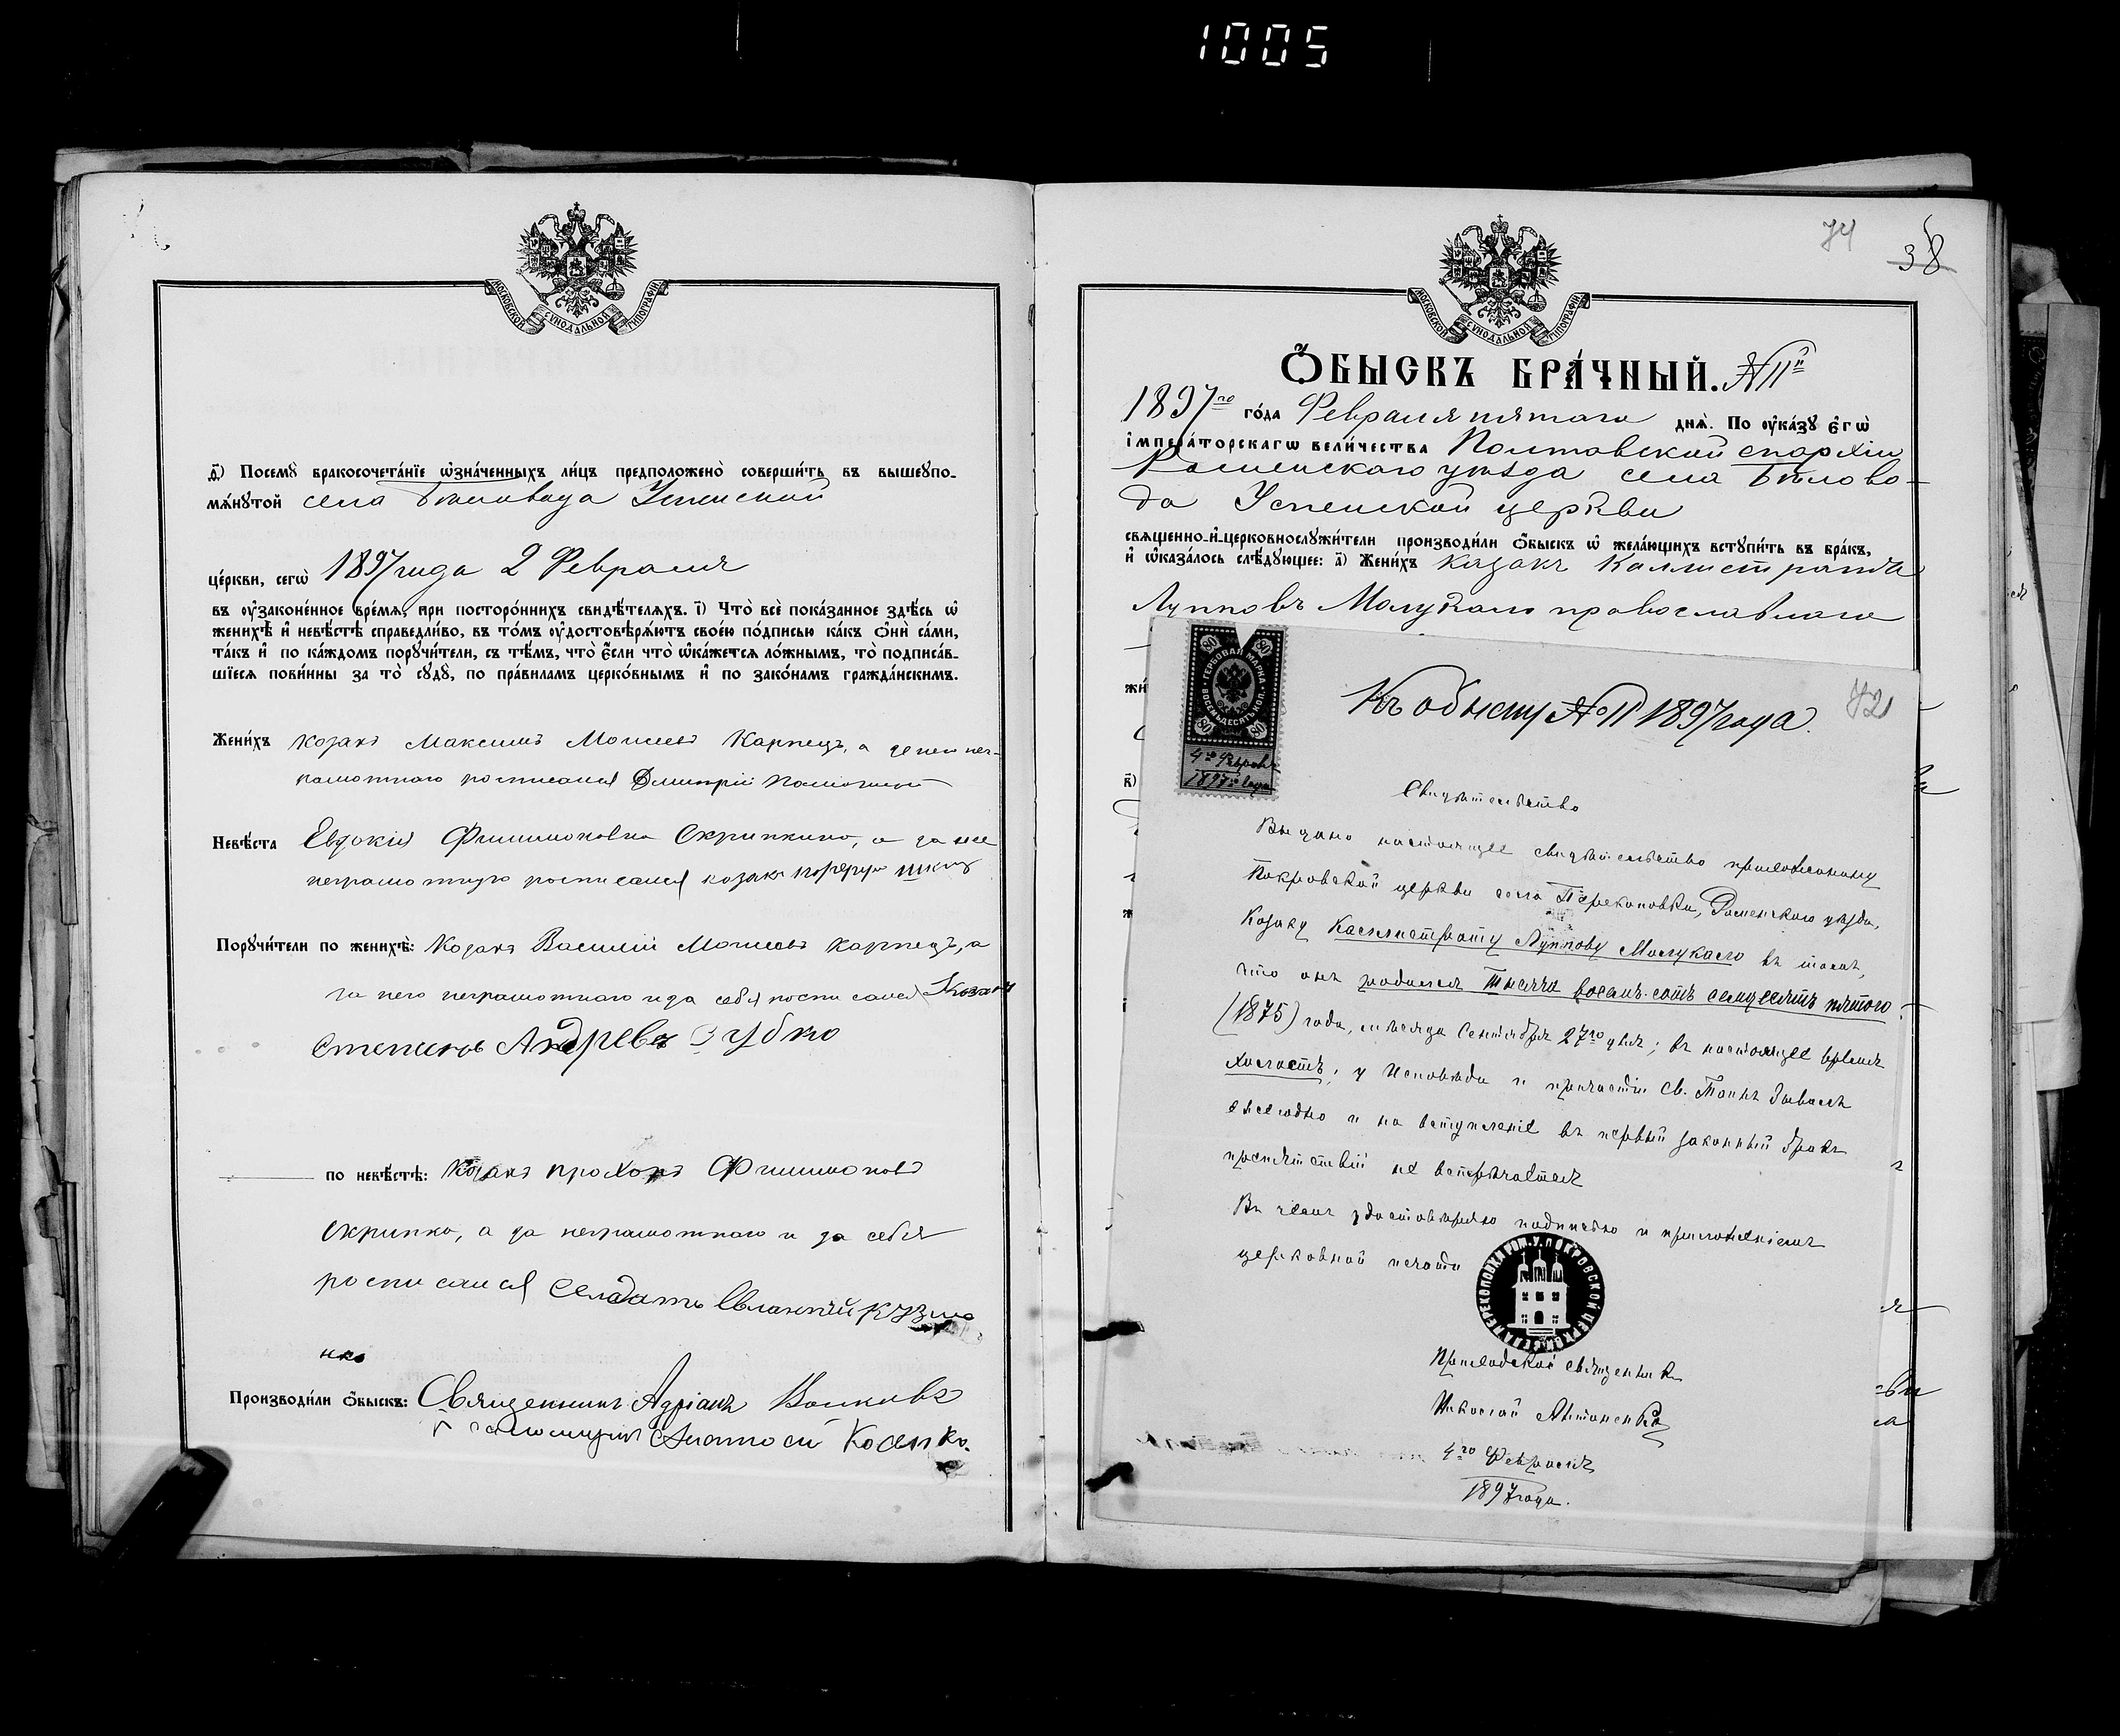 1005
МОСКОВСКОЙ СѴНОДАЛЬНОЙ ТИПОГРАФІИ
д҃) Посемꙋ бракосочета́нїе ѡ҆зна́ченныхъ ли́цъ предположено̀ соверши́ть въ вышеупо-
мѧ́нꙋтой села Бѣловода Успенской
це́ркви, сегѡ̀ 1897 года 2 Февраля
въ оу҆зако́не́нное вре́мѧ, при посторо́ннихъ свидѣ́телѧхъ. і҃) Что̀ всѐ пока́занное здѣ́сь ѡ҆
женихѣ̀ и҆ невѣ́стѣ справедли́во, въ то́мъ оу҆достовѣрѧ́ютъ свое́ю по́дписью ка́къ ѻ҆нѝ са́ми,
та́къ и҆ по ка́ждомъ порꙋчи́тели, съ тѣ́мъ, что̀ є҆́сли что̀ ѡ҆ка́жетсѧ ло́жнымъ, то̀ подписа́в-
шїесѧ пови́нны за то̀ сꙋдꙋ̀, по пра́виламъ церко́внымъ и҆ по зако́намъ гражда́нскимъ.
Жени́хъ козакъ Максимъ Моисеевъ Карпецъ, а за него нег-
рамотнаго росписался Дмитрій
Невѣ́ста Евдокія Филимоновна Скрипкина, а за нее
неграмотную росписался козакъ
Порꙋчи́тели по женихѣ̀: Козакъ Василій Моисеевъ Карпецъ, а
за него неграмотнаго и за себя росписался Козакъ
Степанъ Андреевъ Зубко
по невѣ́стѣ: Козакъ Прохоръ Филимоновъ
Скрипко, а за неграмотнаго и за себя
росписался Солдатъ Евлампій Кузме
нко
Производи́ли ѻ҆́быскъ: Священникъ Адріанъ Волковъ
и псаломщикъ Косенко.
74
38
МОСКОВСКОЙ СѴНОДАЛЬНОЙ ТИПОГРАФІИ
Ѻ҆́БЫСКЪ БРА́ЧНЫЙ. № 11й
1897го го́да Февраля пятаго днѧ̀. По оу҆ка́зꙋ Є҆гѡ̀
и҆мпера́торскагѡ вели́чества Полтавской епархіи
Роменскаго уѣзда села Бѣлово-
да Успенской церкви
свѧще́нно-и҆-церковнослꙋжи́тели производи́ли ѻ҆́быскъ ѡ҆ жела́ющихъ встꙋпи́ть въ бра́къ,
и҆ ѡ҆каза́лось слѣ́дꙋющее: а҃) Жени́хъ козакъ Каллистратъ
Лупповъ Малукало православнаго
жи́
в҃)
80 80
ГЕРБОВАЯ МАРКА ВОСЕМЬДЕСЯТЪ КОП.
80 80
4го Февраля
1897го года
Къ обыску № 11 1897 года.
Свидѣтельство
Выдано настоящее свидѣтельство прихожанину
Покровской церкви села Перекоповки, Роменскаго уѣзда,
Козаку Каллистрату Луппову Малукало въ томъ,
что онъ родился Тысяча восемь-сотъ семдесятъ пятого
(1875) года, мѣсяца Сентября 27го дня; въ настоящее время
холостъ; у Исповѣди и причастія Св. Таинъ бываетъ
ежегодно и на вступленіе въ первый законный бракъ
препятствій не встрѣчается
Въ чемъ удостовѣряю подписью и приложеніемъ
церковной печати
Приходской священникъ
Николай Антоненко
4го Февраля
1897 года.